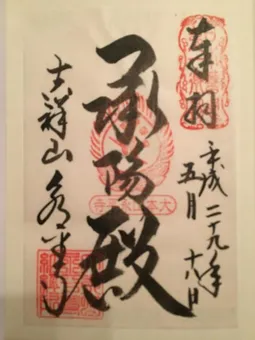 奉拝
平成二十九年
五月十八日
承陽殿
大本山永平寺
吉祥山永平寺